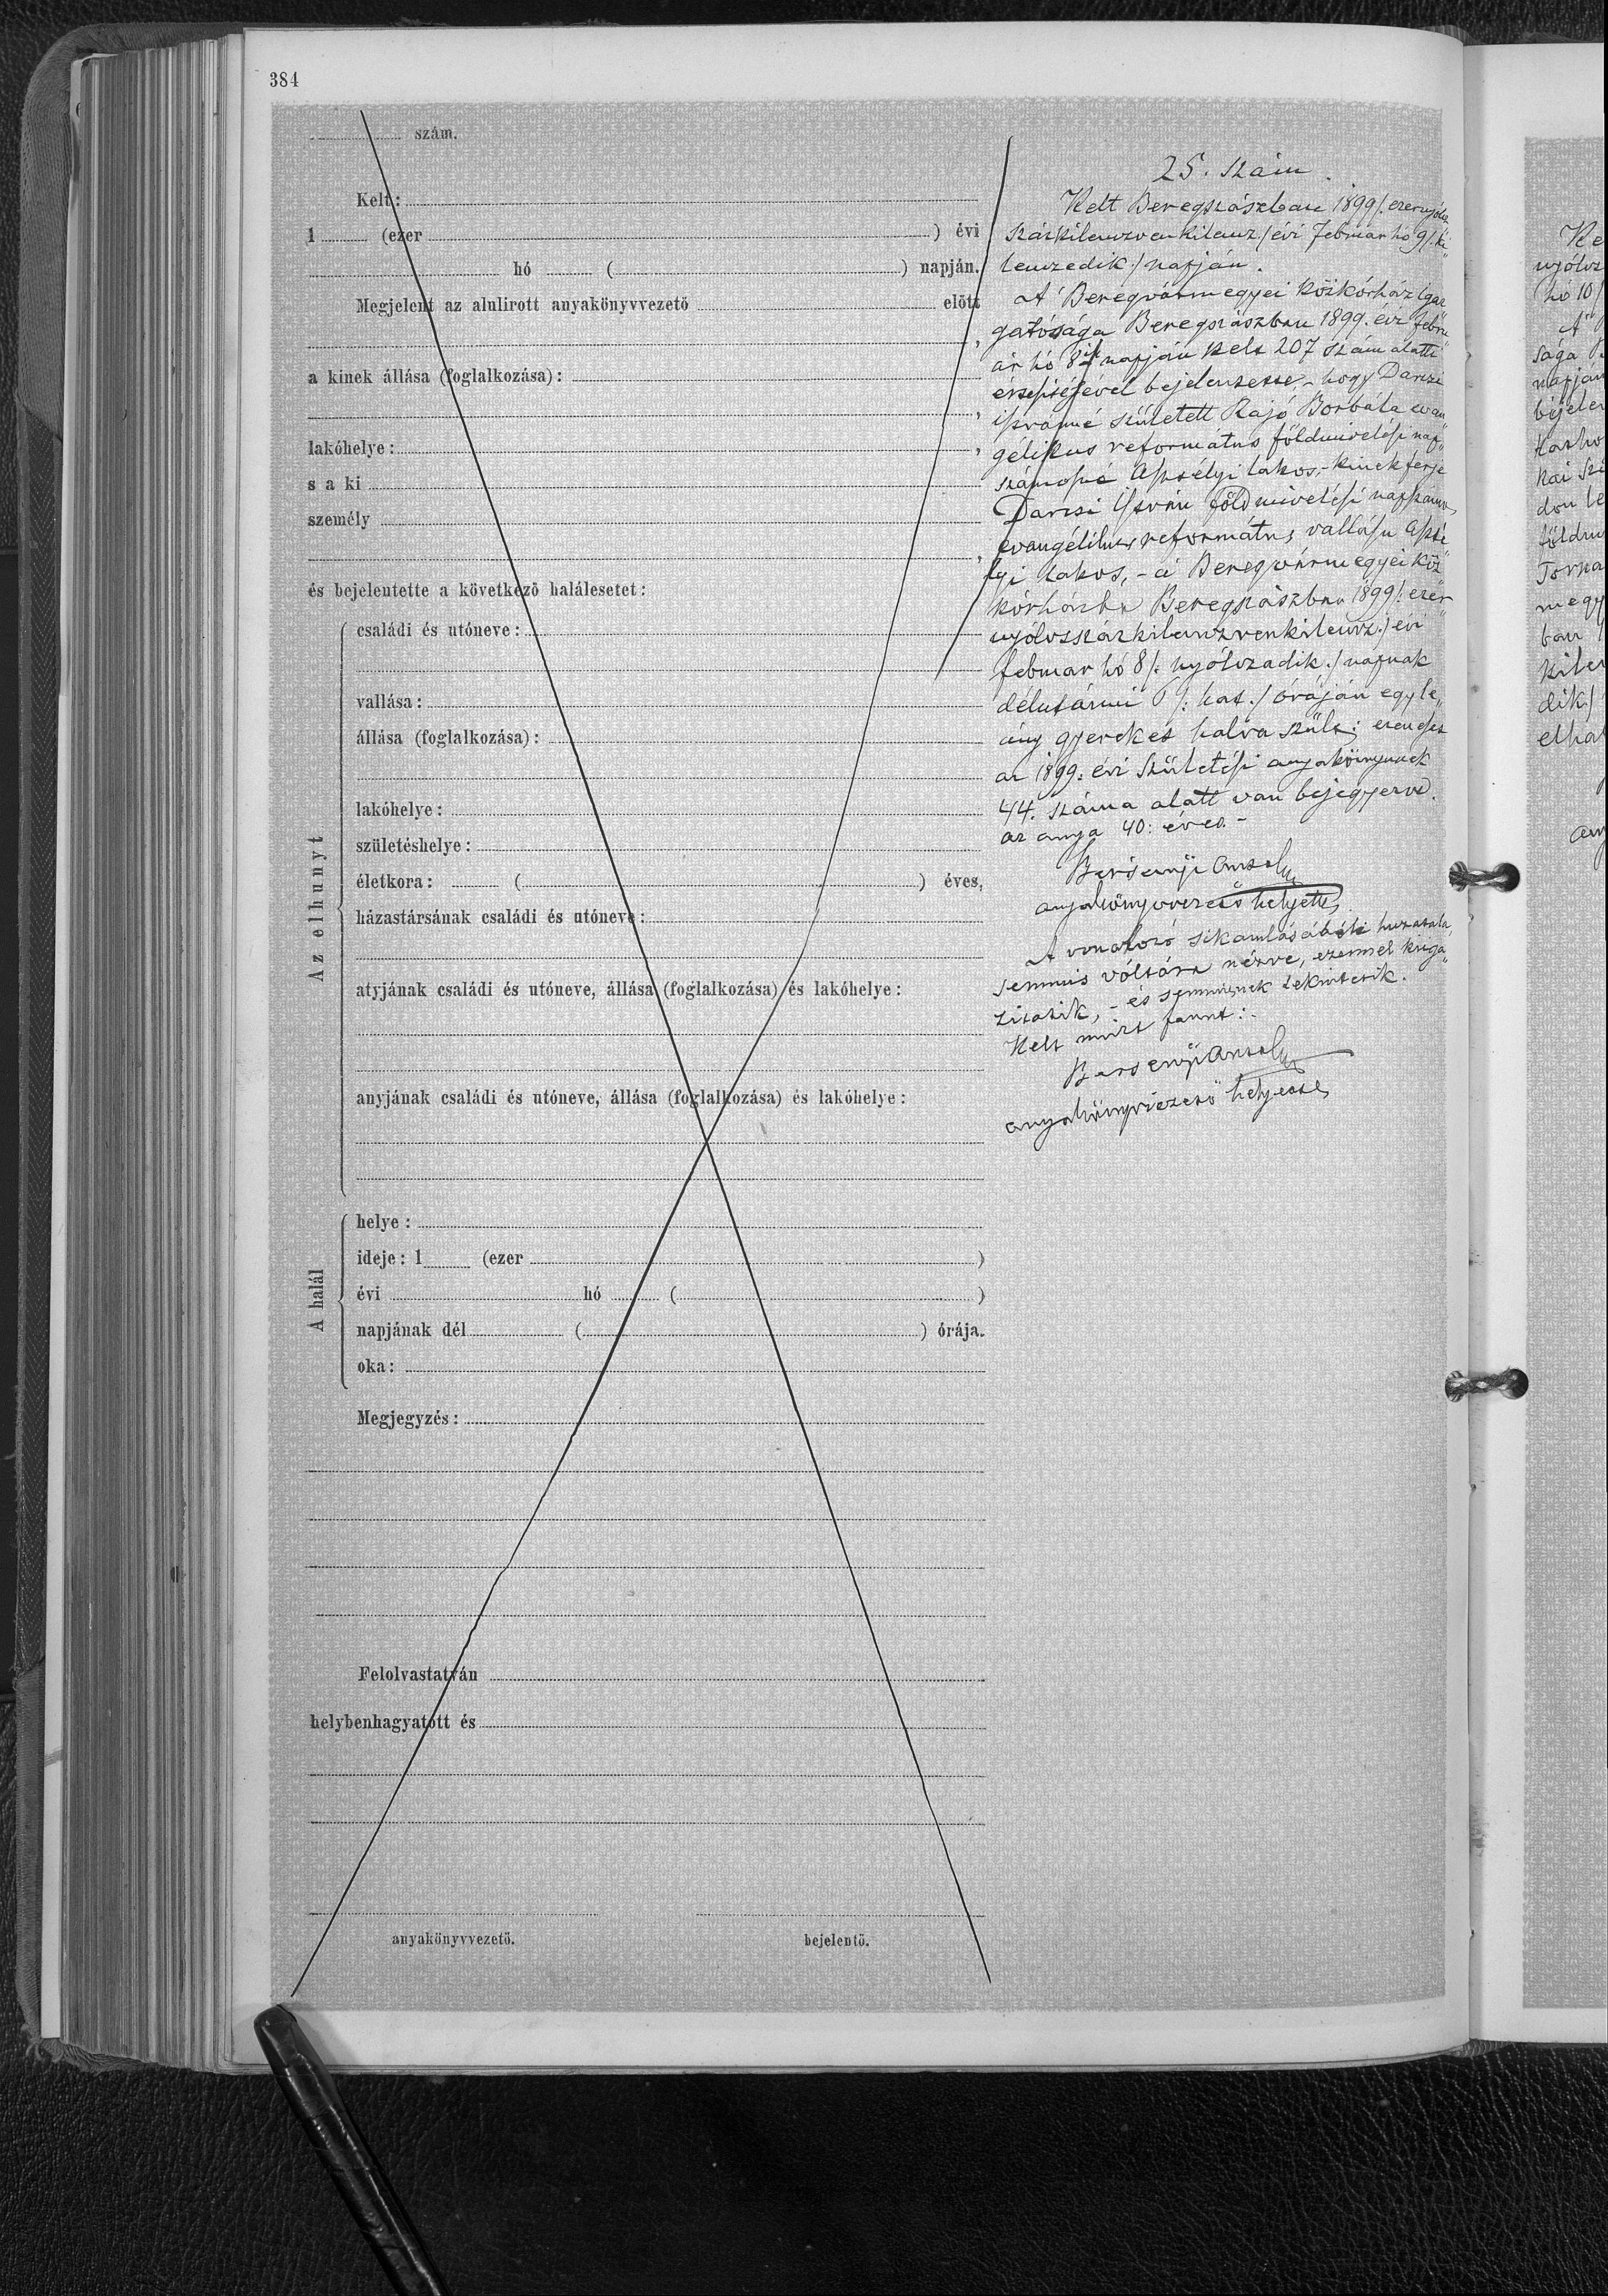 384
szám.
Kelt:
1 (ezer ) évi
hó ( ) napján.
Megjelent az alulirott anyakönyvvezető előtt
,
a kinek állása (foglalkozása):
,
lakóhelye: ,
s a ki
személy
,
és bejelentette a következő halálesetet:
Az elhunyt
családi és utóneve:
vallása:
állása (foglalkozása):
lakóhelye:
születéshelye:
életkora: ( ) éves,
házastársának családi és utóneve:
atyjának családi és utóneve, állása (foglalkozása) és lakóhelye:
anyjának családi és utóneve, állása (foglalkozása) és lakóhelye:
A halál
helye:
ideje: 1 (ezer )
évi hó ( )
napjának dél ( ) órája.
oka:
Megjegyzés:
Felolvastatván
helybenhagyatott és
anyakönyvvezető. bejelentő.
25. szám.
Kelt Beregszászban 1899/. ezernyolcz„
százkilenczvenkilencz./ évi február hó 9/. ki„
lenczedik./ napján.
A Beregvármegyei Közkórház igaz„
gatósága Beregszászban 1899. évi febru„
ár hó 8ik napján kelt 207 szám alatti
értesítésével bejelentette, - hogy Darczi
Istvánné született Rajó Borbála evan„
gélikus református földmivelési nap„
számosné lakos, - kinek férje
Darczi István földmivelési napszámos
evangélikus református vallásu
lakos, - a Beregvármegyei köz„
kórházba Beregszászban 1899/. ezer„
nyólczszázkilenczvenkilencz./ évi
február hó 8/. nyólczadik./ napnak
délutánni 6/: hat./ óráján egy le„
ány gyereket halva szült;
az 1899: évi születési anyakönyvnek
44. száma alatt van bejegyezve.
az anya 40: éves. -
anyakönyvvezető helyettes.
A vonatkozó
semmis vóltára nézve, ezennel kiiga„
zitatik, - és semmisnek tekintetik.
Kelt mint fennt:.
anyakönyvvezető helyettes
Ke
nyólcz
hó 10/
A
sága
napján
bejelen